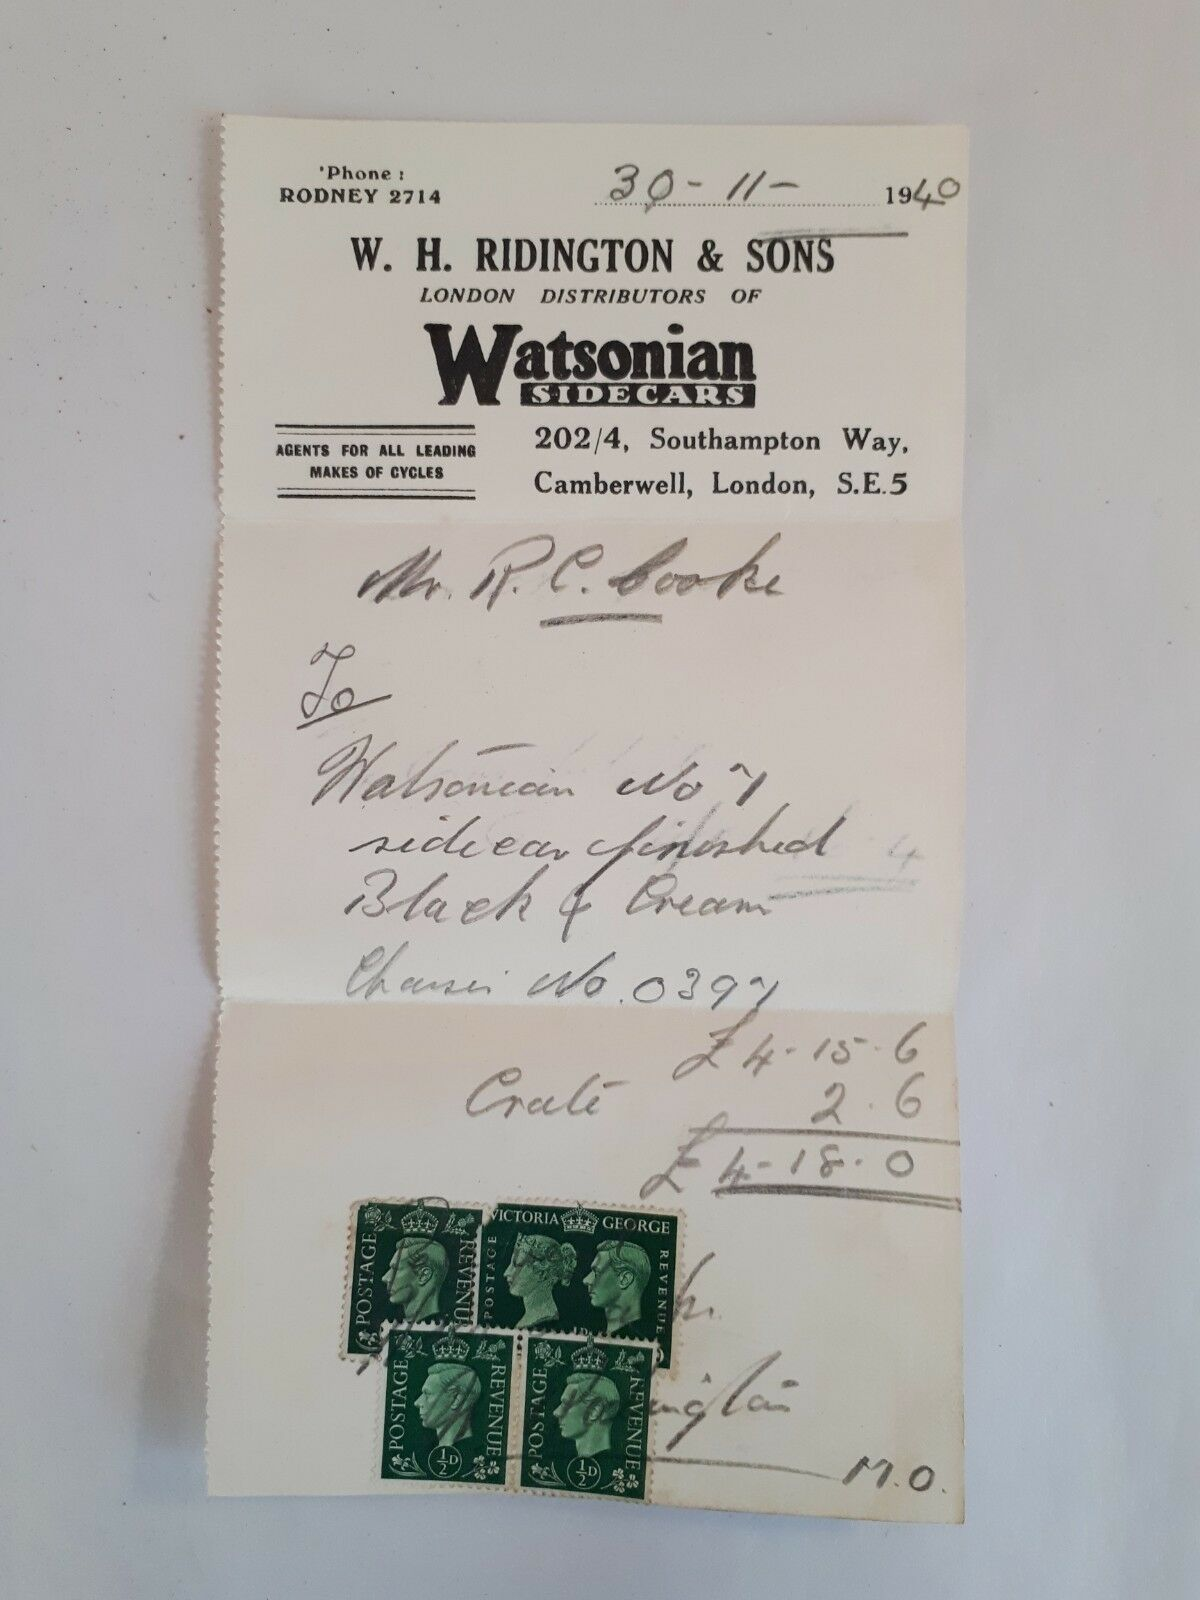 'Phone :
RODNEY 2714
30-11- 1940
W. H. RIDINGTON & SONS
LONDON DISTRIBUTORS OF
Watsonian
SIDECARS
AGENTS FOR ALL LEADING
MAKES OF CYCLES
202/4, Southampton Way,
Camberwell, London, S.E.5
Mr. R. C. Cooke
To
Watsonian No 7
sidecar finished
Black & Cream
Chassis No. 0397
£4-15-6
Crate 2.6
£4-18-0
POSTAGE REVENUE
VICTORIA GEORGE
POSTAGE REVENUE
POSTAGE REVENUE
½D
POSTAGE REVENUE
½D
M.O.